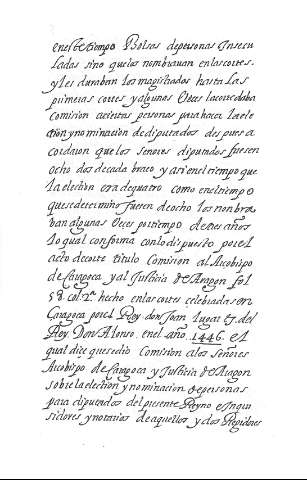 en este tiempo Bolsas de personas Insecu
ladas sino que los nombrauan en las cortes,
y les durauan los magistrados hasta Las
primeras cortes y algunas Veces la
Comision a ciertas personas para hacer la ele
cion y nominacion de diputados despues a
cordaron que los señores diputados fuesen
ocho dos de cada braço y assi en el tiempo que
la election era de quatro como en el tiempo
que se determino fuesen de ocho los nombra
uan algunas Veces por tiempo de tres años
lo qual conforma con lo dispuesto por el
acto de corte titulo Comision al Arcobispo
de Caragoça y al Justicia de Aragon fol
58. col. 2ª hecho en las cortes celebradas en
Caragoça por el Rey don Juan Lugarᵗ del
Rey Don Alonso en el año 1446. el
qual dice que se dio Comision a los señores
Arcobispo de Caragoça y Justicia de Aragon
sobre la election y nominacion de personas
para diputados del presente Reyno e Inqui
sidores y notarios de aquellos y dos Regidores